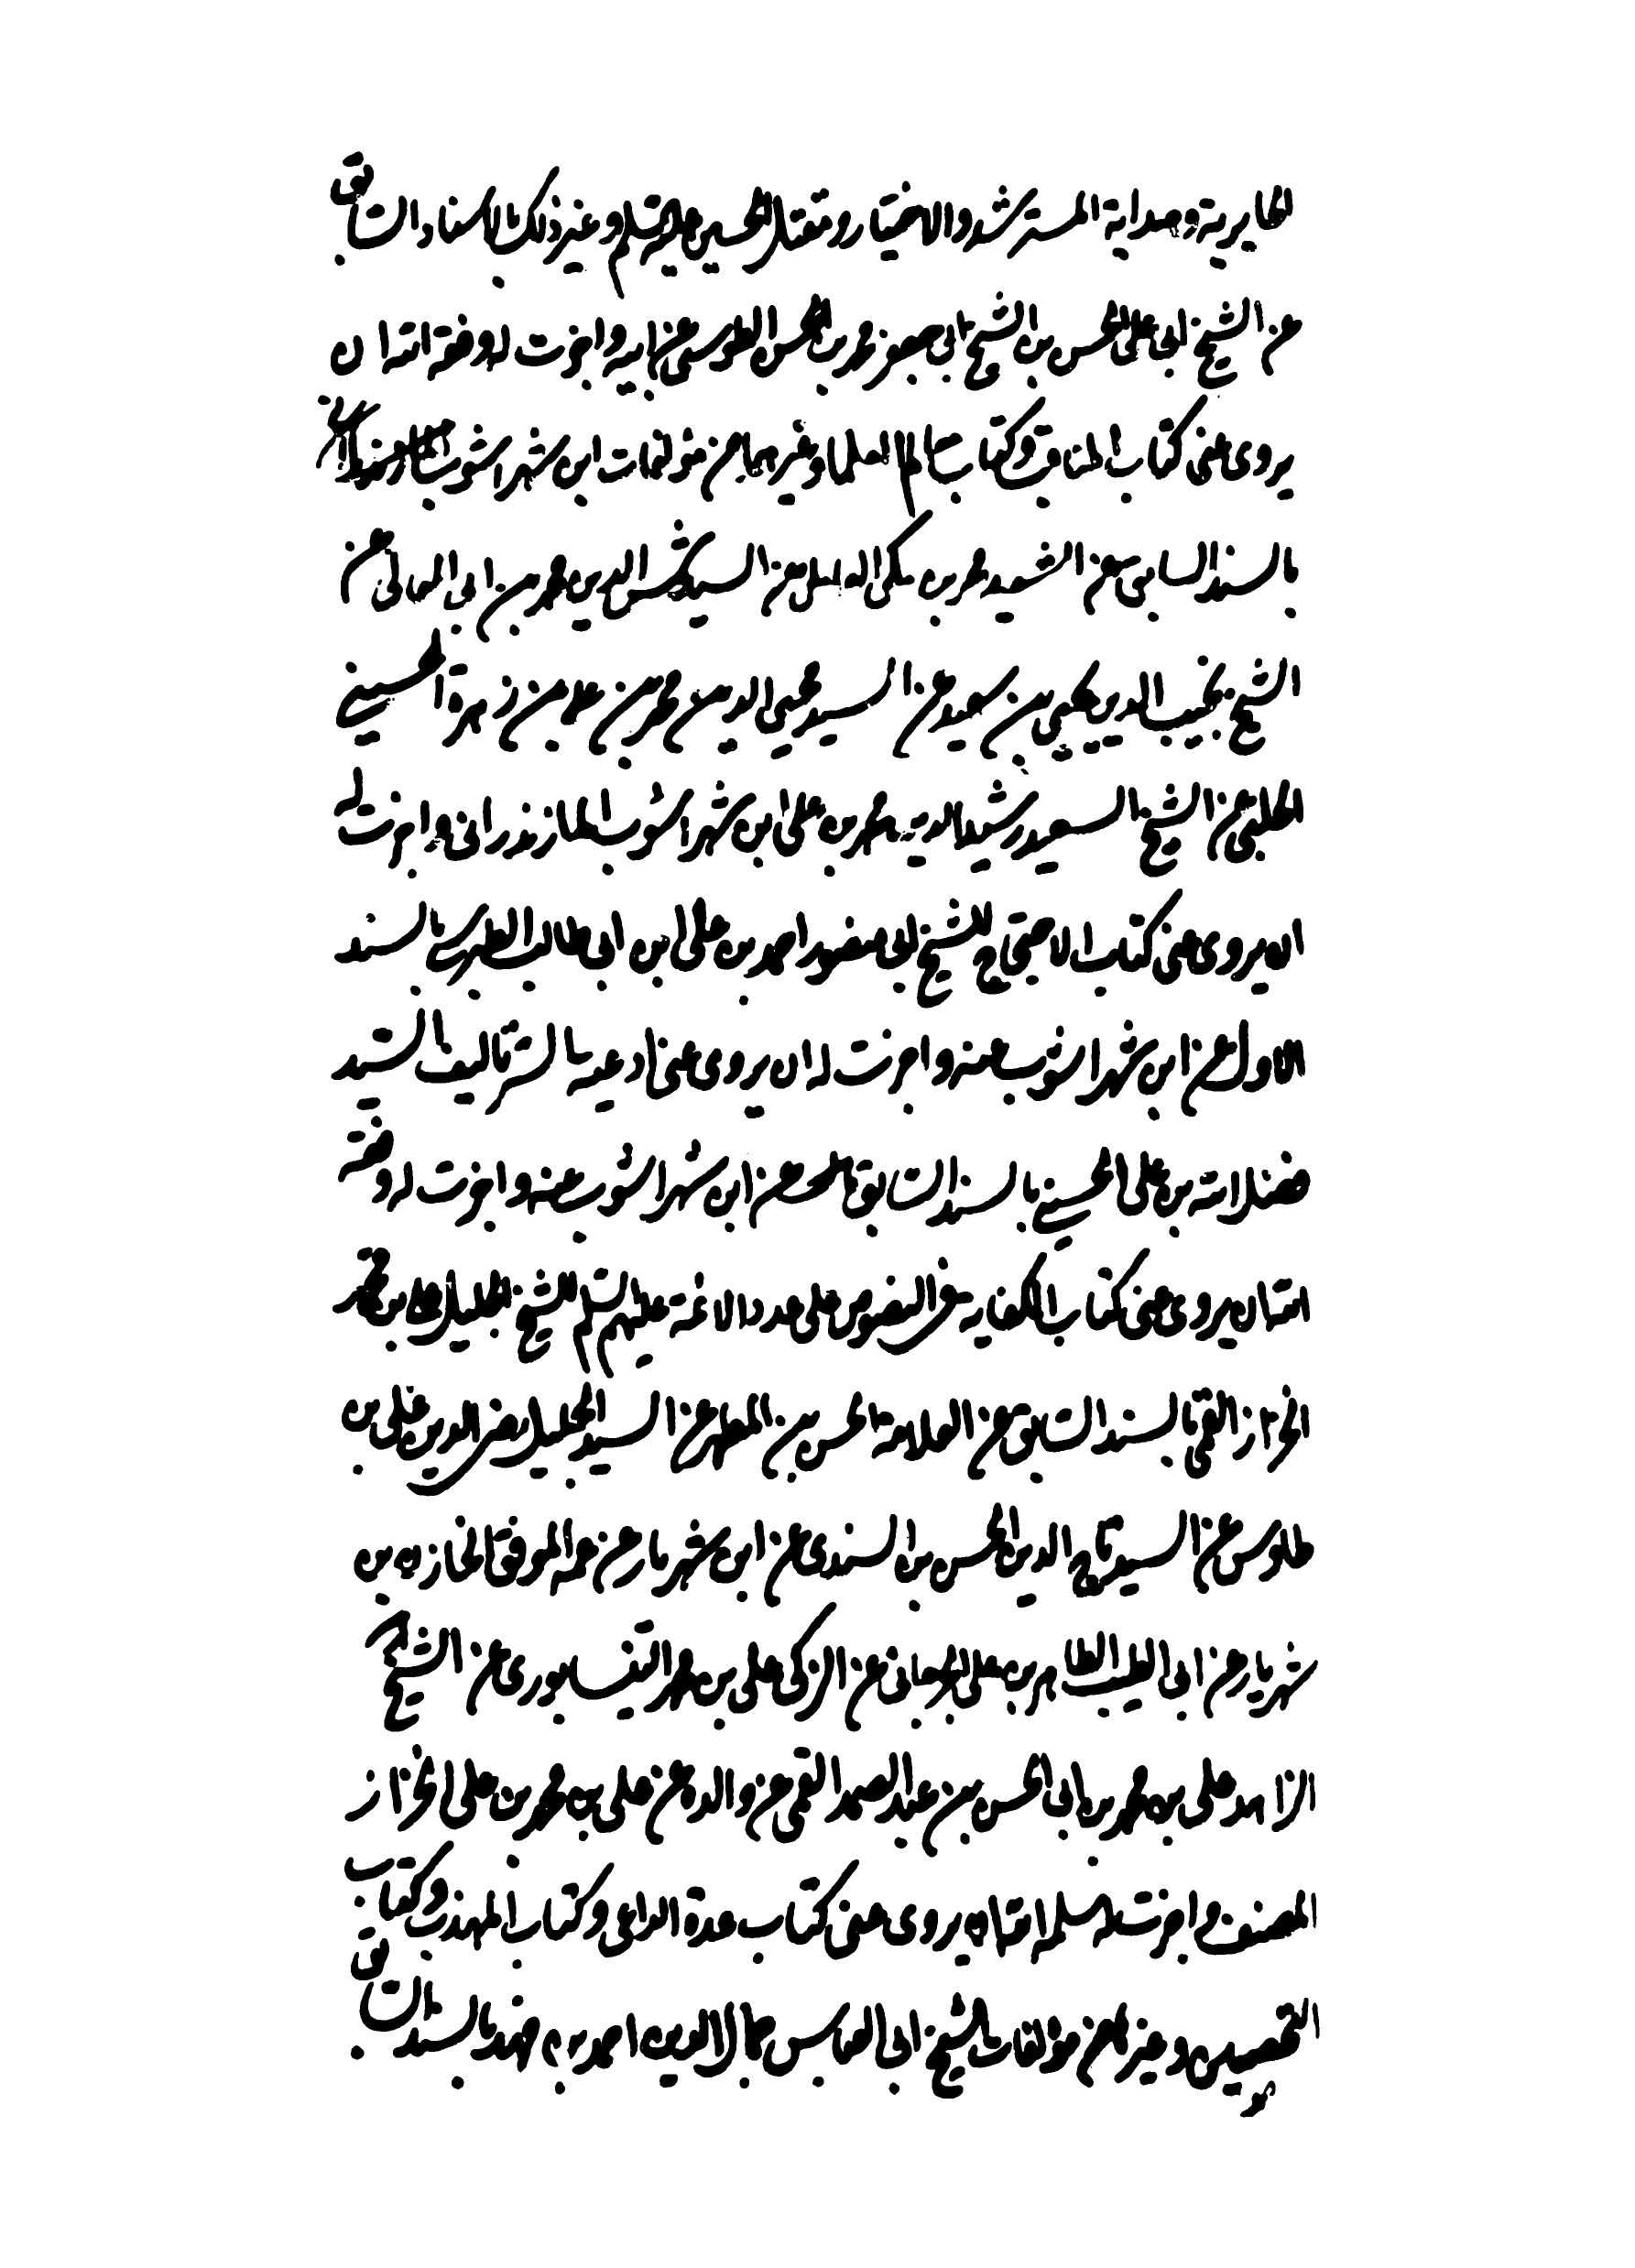 الحايرية وهداية المسترشد والاختيار ومقتل الحسين عليه السلم وغير ذلك بالاسناد السابق
عن الشيخ ابي علي الحسن بن الشيخ ابي جعفر محمد بن الحسن الطوسي عن ابيه واجزت له وفقه الله ان
يروى عنى كتاب المناقب وكتاب معالم العلما وغيرهما من مؤلفات ابن شهراشوب المازندراني
بالسند السابق عن الشهيد محمد بن مكي العاملي عن السيد شمس الدين محمد بن ابي المعالي عن
الشيخ نجيب الدين يحيى بن سعيد عن السيد محيى الدين محمد بن علي بن زهرة الحسيني
الحلبي عن الشيخ السعيد رشيد الدين محمد بن على ابن شهراشوب المازندراني واجزت له
ان يروى عنى كتاب الاحتجاج للشيخ ابي منصور احمد بن على ابن ابي طالب الطبرسي بالسند
الاول عن ابن شهراشوب عنه واجزت له ان يروى عنى ادعية السر تاليف السيد
فضل الله بن على الحسيني بالسند السابق عن ابن شهراشوب عنه واجزت له وفقه
الله ان يروى عنى كتاب الكفاية في النصوص على عدد الائمة عليهم السلم للشيخ الجليل علي بن محمد
الخزاز القمي بالسند السابق عن العلامة الحسن بن المطهر عن السيد الجليل رضي الدين على بن
طاوس عن السيد تاج الدين الحسن بن السندى عن ابن شهريار عن عمه الموفق الخازن بن
شهريار عن ابي الطيب الطاهر بن على الجرجاني عن الزكى على بن محمد النيسابورى عن الشيخ
الزاهد على بن محمد بن ابي الحسن بن عبد الصمد القمي عن والده عن على بن محمد بن على الخزاز
المصنف واجزت له سلمه الله ان يروى عنى كتاب عدة الداعي وكتاب المهذب وكتاب
التحصين وغيرها من مؤلفات الشيخ ابي العباس جمال الدين احمد بن فهد بالسند السابق